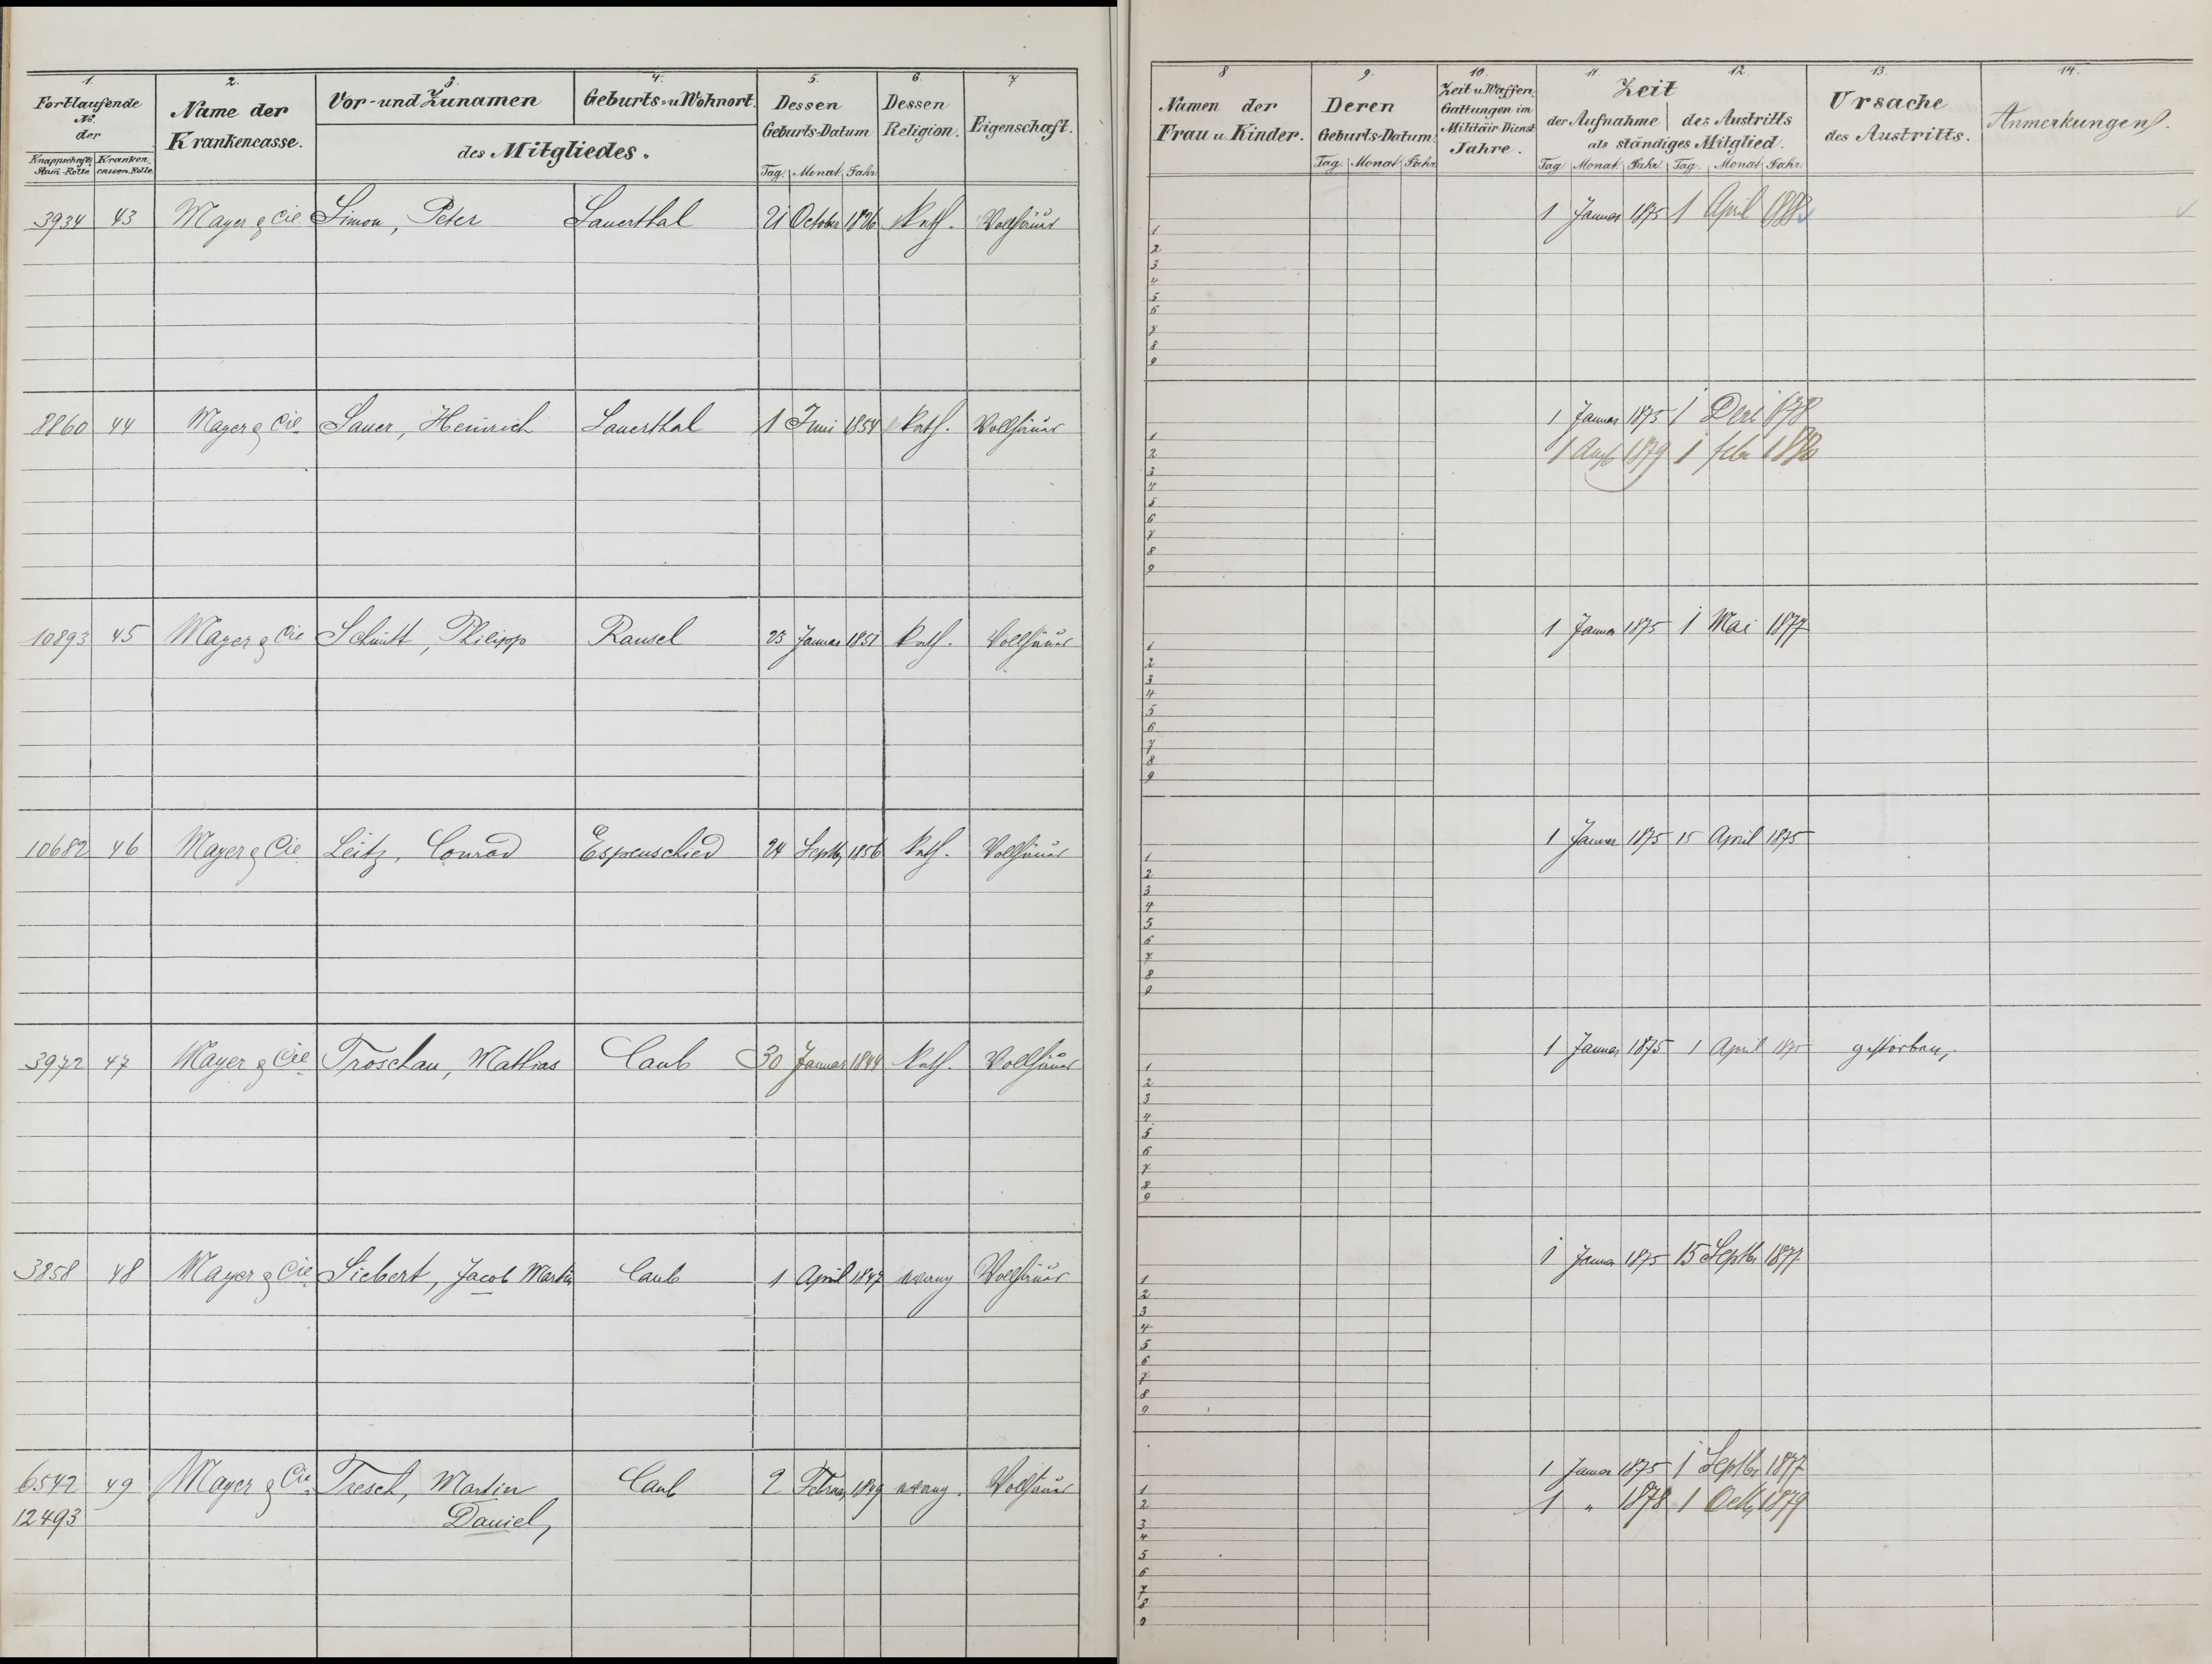 1. 2. 3. 4. 5. 6. 7
Fortlaufende No. der
Knappschafts Stam-Rolle Kranken cassen-Rolle
Name der Krankencasse.
Vor- und Zunamen Geburts- u Wohnort.
des Mitgliedes.
Dessen Geburts-Datum
Tag. Monat Jahr
Dessen Religion.
Eigenschaft.
3934 43 Mayer & Cie Simon, Peter Sauerthal 21 October Kath. Vollhäuer
8860 44 Mayer & Cie. Sauer, Heinrich Sauerthal 1 Juni 1854 Kath. Vollhäuer
10893 45 Mayer & Cie Schmitt, Philipp Ransel 23 Januar 1851 Kath. Vollhäuer
10682 46 Mayer & Cie Leitz, Conrad Espenschied 24 Septb, 1856 Kath. Vollhäuer
3972 47 Mayer & Cie Troschau, Mathias Caub 30 Januar 1844 Kath. Vollhäuer
3858 48 Mayer & Cie Siebert, Jacob Martin Caub 1 April 1847 evang Vollhäuer
6542 49 Mayer & Cie. Tresch, Martin Caub 2 Februar 1849 evang. Vollhäuer
12493 Daniel,
8. 9. 10. 11. 12. 13. 14.
Namen der Frau u. Kinder.
Deren Geburts-Datum.
Tag. Monat Jahr
Zeit u Waffen-Gattungen im Militair-Dienst Jahre.
Zeit
der Aufnahme des Austritts
als ständiges Mitglied.
Tag Monat Jahr. Tag. Monat Jahr.
Ursache des Austritts.
Anmerkungen.
1 Januar 1875 1 April
1
2
3
4
5
6
7
8
9
1 Januar 1875 1 1878
1 Augt 1879 1 febr 1880
1
2
3
4
5
6
7
8
9
1 Januar 1875 1 Mai 1877
1
2
3
4
5
6
7
8
9
1 Januar 1875 15 April 1875
1
2
3
4
5
6
7
8
9
1 Januar 1875 1 April 1875 gestorben,
1
2
3
4
5
6
7
8
9
1 Januar 1875 15 Septbr 1877
1
2
3
4
5
6
7
8
9
1 Januar 1875 1 Septbr 1877
1 " 1878 1 Octb, 1879
1
2
3
4
5
6
7
8
9